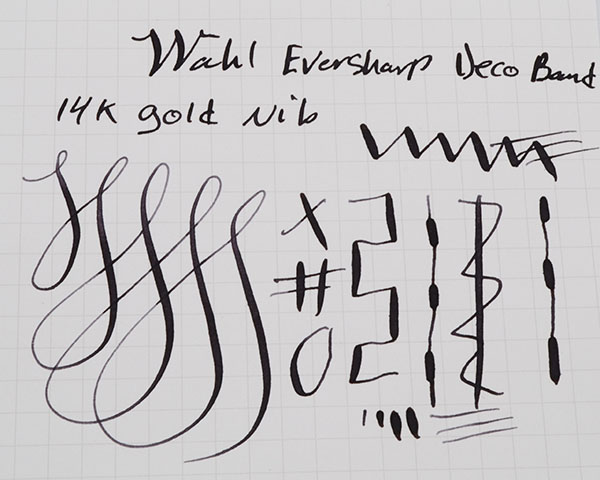 Wahl Eversharp Deco Band
14K gold Nib
X
#
O